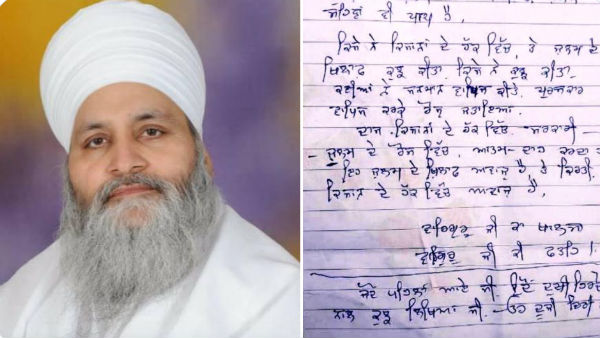 ਸਹਿਣਾ ਵੀ ਪਾਪ ਹੈ,
ਕਿਸੇ ਨੇ ਕਿਸਾਨਾਂ ਦੇ ਹੱਕ ਵਿੱਚ, ਤੇ ਜੁਲਮ ਦੇ
ਖਿਲਾਫ ਕੁਝ ਕੀਤਾ. ਕਿਸੇ ਨੇ ਕੁਝ ਕੀਤਾ.
ਕਈਆਂ ਨੇ ਸਨਮਾਨ ਵਾਪਿਸ ਕੀਤੇ, ਪੁਰਸਕਾਰ
ਵਾਪਿਸ ਕਰਕੇ ਰੋਸ ਜਤਾਇਆ.
ਦਾਸ, ਕਿਸਾਨਾਂ ਦੇ ਹੱਕ ਵਿੱਚ. ਸਰਕਾਰੀ -
- ਜੁਲਮ ਦੇ ਰੋਸ ਵਿੱਚ. ਆਤਮ-ਦਾਹ ਕਰਦਾ
ਇਹ ਜੁਲਮ ਦੇ ਖਿਲਾਫ ਆਵਾਜ਼ ਹੈ, ਤੇ ਕਿਰਤੀ
ਕਿਸਾਨ ਦੇ ਹੱਕ ਵਿੱਚ ਆਵਾਜ਼ ਹੈ,
ਵਾਹਿਗੁਰੂ ਜੀ ਕਾ ਖਾਲਸਾ
ਵਾਹਿਗੁਰੂ ਜੀ ਕੀ ਫਤਹਿ।
ਪਹਿਲਾਂ ਆਏ ਸੀ.
ਨਾਲ ਕੁਝ ਲਿਖਿਆ ਸੀ. -